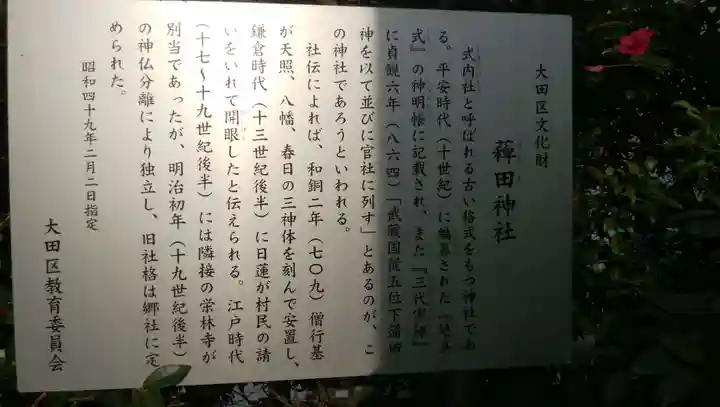 大田区文化財
薭田神社
式内社と呼ばれる古い格式をもつ神社であ
る。平安時代(十世紀)に編纂された『延喜
式』の神明帳に記載され、また『三代実録』
に貞観六年(八六四)「武蔵国従五位下蒲田
神を以て並びに官社に列す」とあるのが、こ
の神社であろうといわれる。
社伝によれば、和銅二年(七〇九)僧行基
が天照、八幡、春日の三神体を刻んで安置し、
鎌倉時代(十三世紀後半)に日蓮が村民の請
いをいれて開眼したと伝えられる。江戸時代
(十七〜十九世紀後半)には隣接の栄林寺が
別当であったが、明治初年(十九世紀後半)
の神仏分離により独立し、旧社格は郷社に定
められた。
昭和四十九年二月二日指定
大田区教育委員会